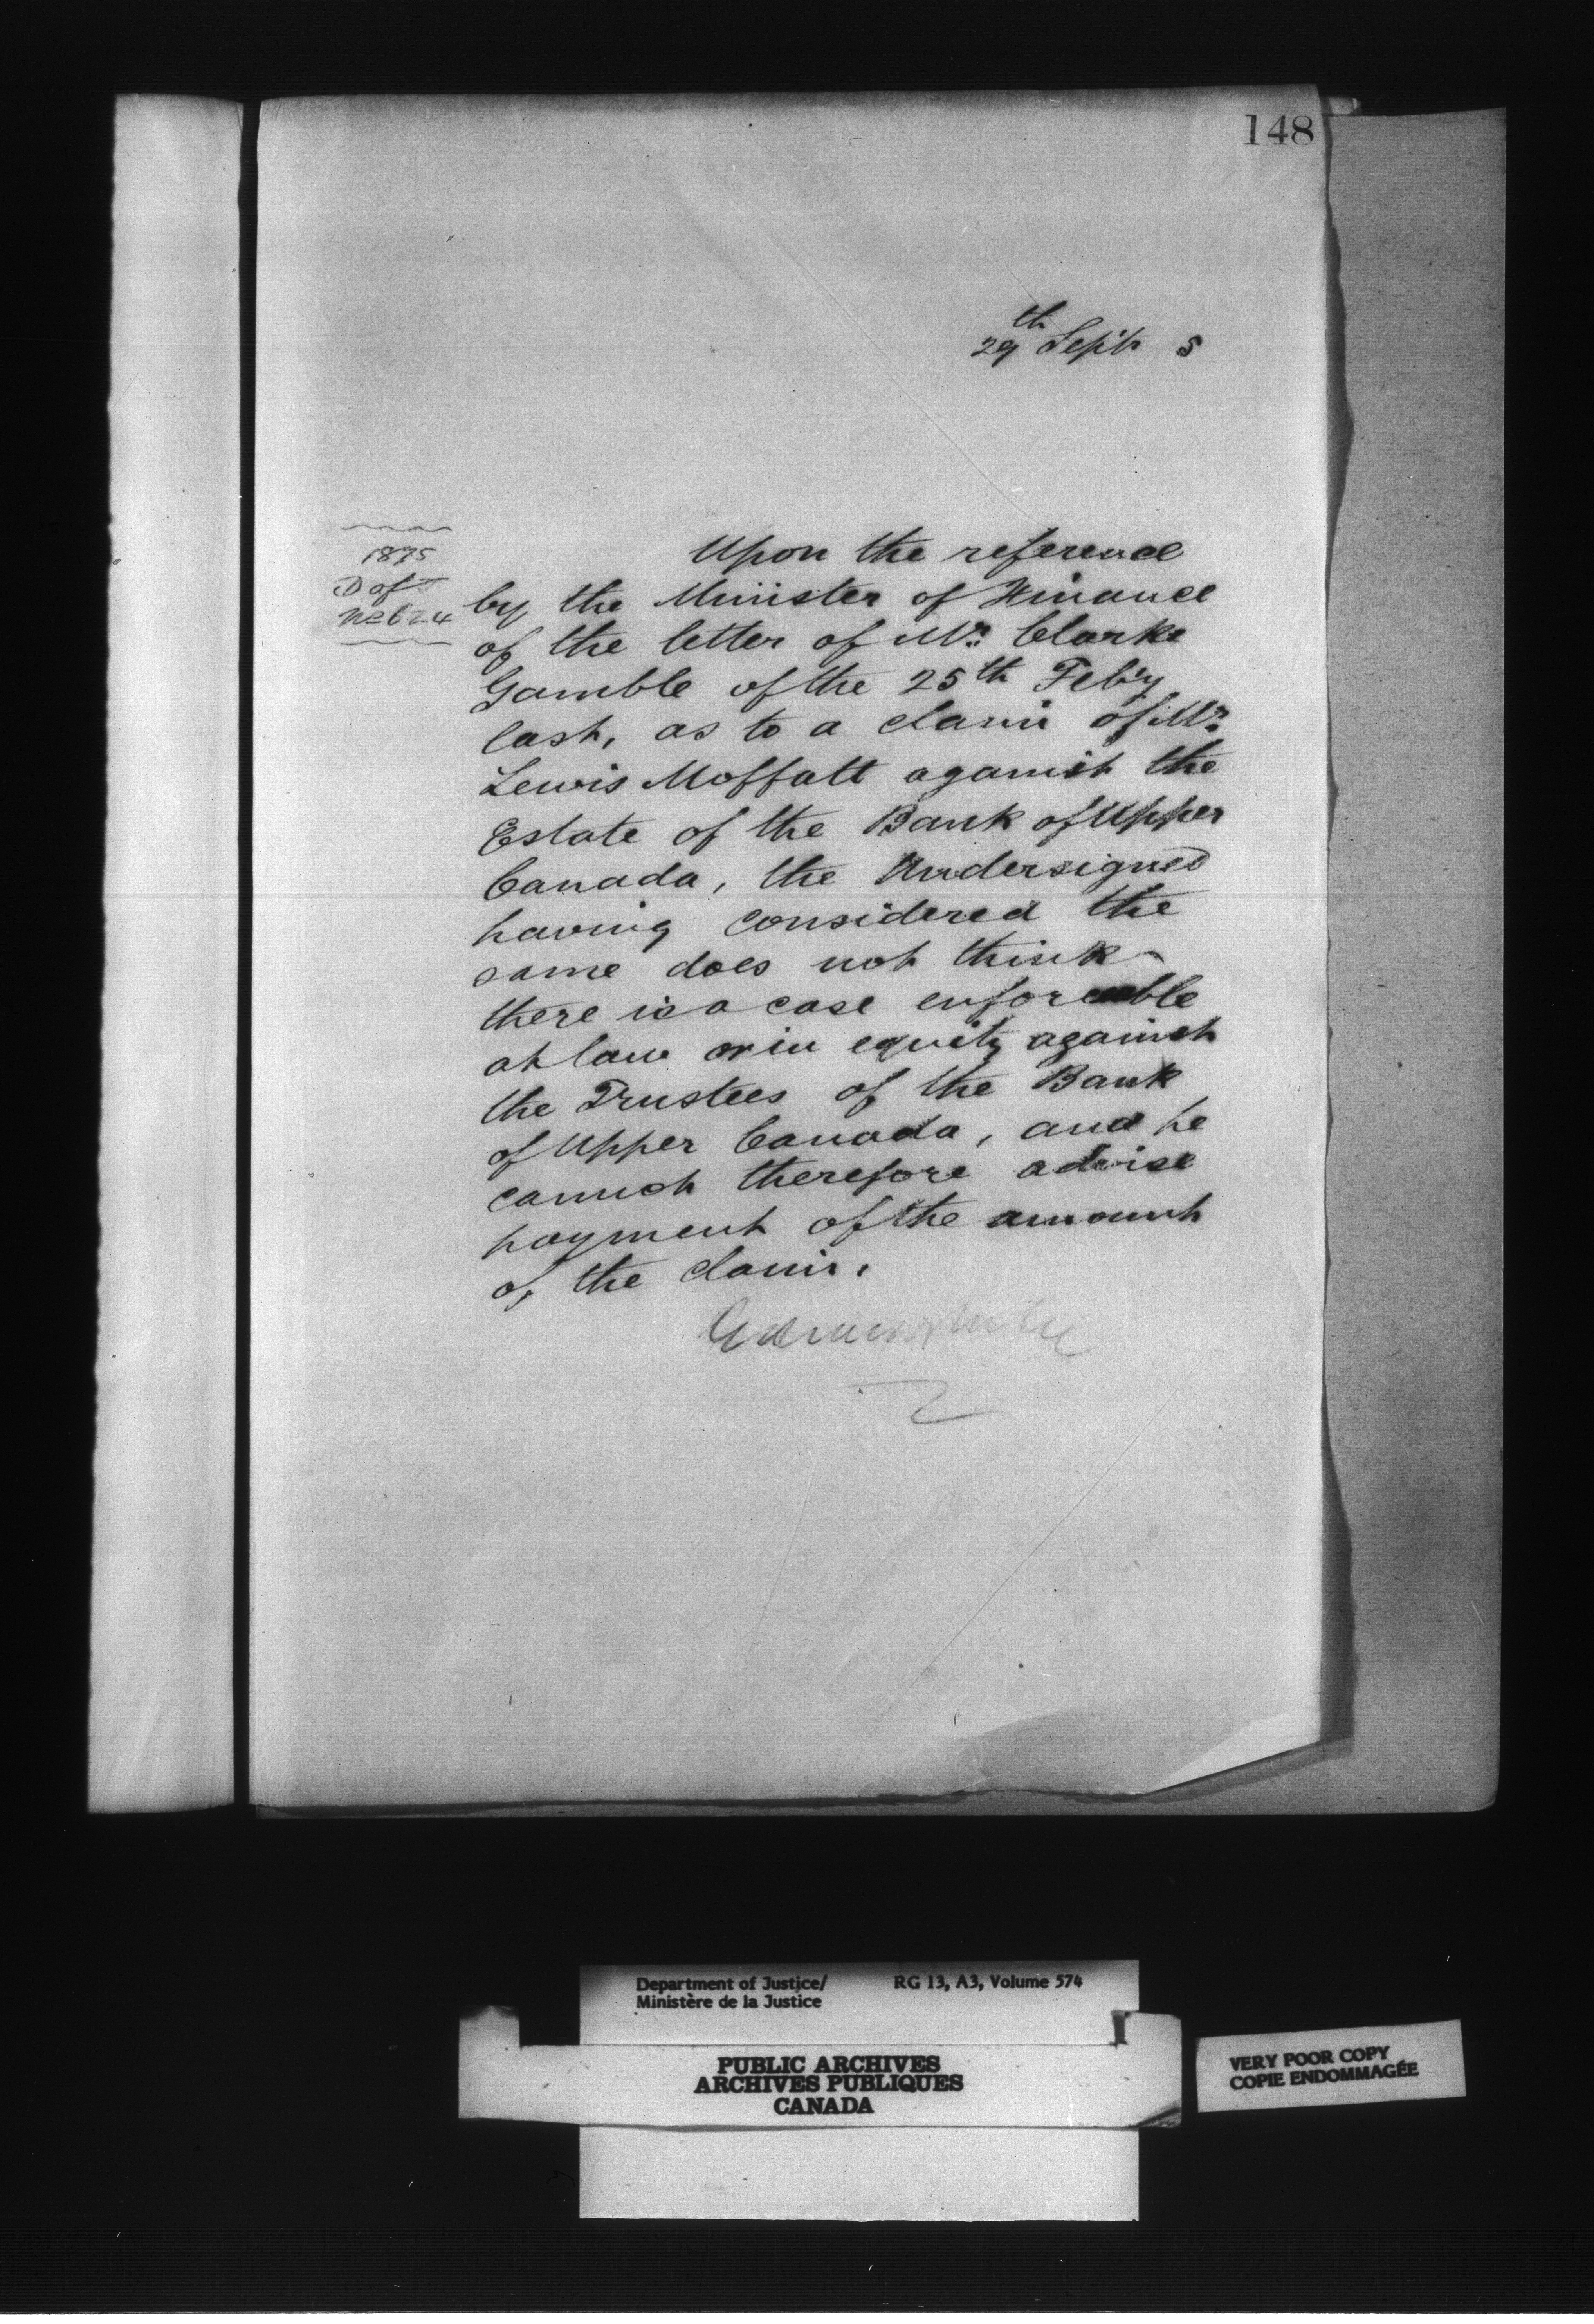 148
29th Sept 5
1875
D of J
No 624
Upon the reference
by the Minister of Finance
of the letter of Mr. Clarke
Gamble of the 25th Feb'y
last, as to a claim of Mr.
Lewis Moffatt against the
Estate of the Bank of Upper
Canada, the Undersigned
having considered the
same does not think
there is a case enforceable
at law or in equity against
the Trustees of the Bank
of Upper Canada, and he
cannot therefore advise
payment of the amount
of the claim.
Department of Justice/
Ministère de la Justice
RG 13, A3, Volume 574
PUBLIC ARCHIVES
ARCHIVES PUBLIQUES
CANADA
VERY POOR COPY
COPIE ENDOMMAGÉE